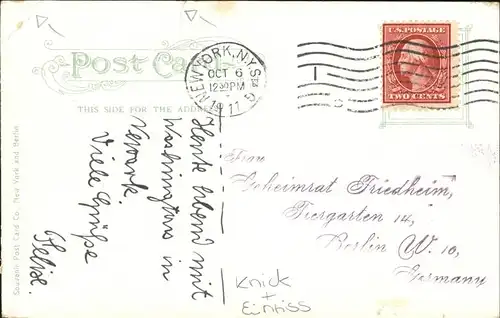 Post Card
THIS SIDE FOR THE ADDRESS
NEW YORK, N.Y. STA G
OCT 6
12 30 PM
1911
1
U.S. POSTAGE
TWO CENTS
Heute Abend mit
Washington in
Newark.
Viele Grüße
Felix.
Frau
Geheimrat Friedheim,
Tiergarten 14,
Berlin W. 10,
Germany
Knick
+
Einriss
Souvenir Post Card Co., New York and Berlin